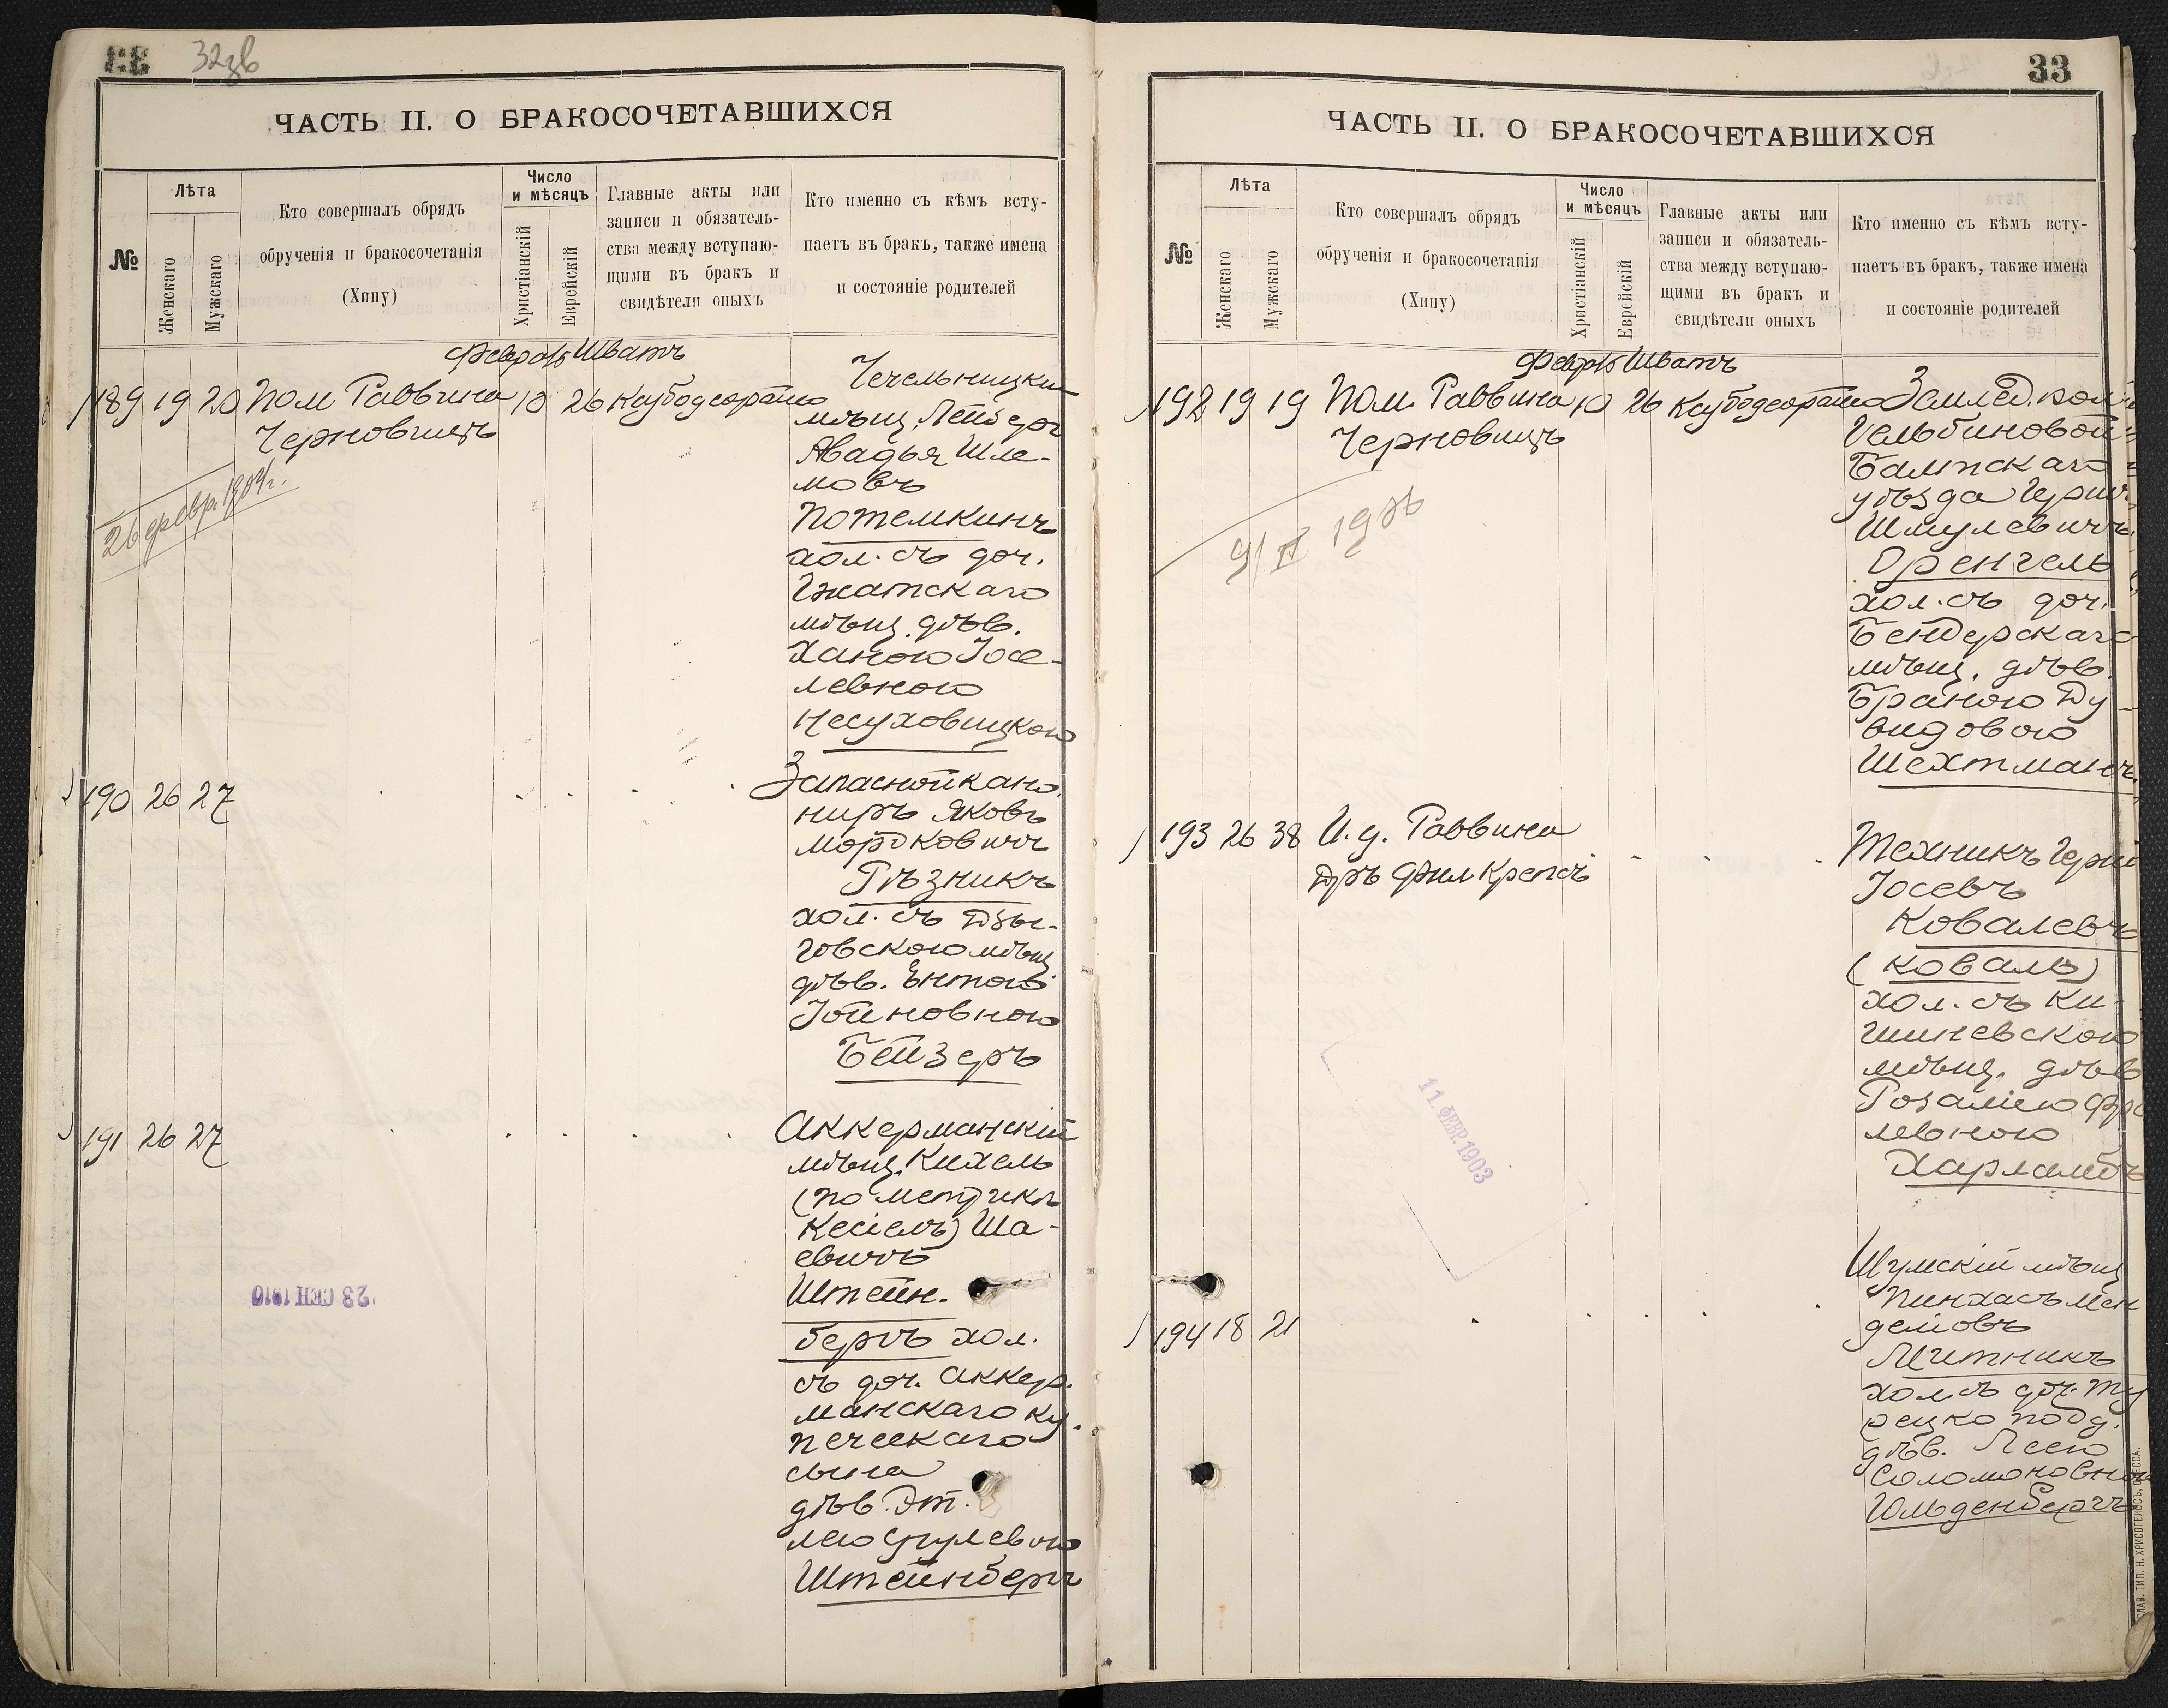 32зв
ЧАСТЬ II. О БРАКОСОЧЕТАВШИХСЯ
№
Лѣта
Женскаго
Мужскаго
Кто совершалъ обрядъ
обрученія и бракосочетанія
(Хипу)
Число
и мѣсяцъ
Христіанскій
Еврейскій
Главные акты или
записи и обязатель-
ства между вступаю-
щими въ бракъ и
свидѣтели оныхъ
Кто именно съ кѣмъ всту-
паетъ въ бракъ, также имена
и состояніе родителей
Шватъ
189 19 20 Пом Раввина 10 26
Черновицъ
26 февр. 1904г.
мѣщ. Лейзеръ
Авадья Шле-
мовъ
Потемкинъ
хол. съ доч.
Гжатскаго
мѣщ. дѣв.
Ханою Іосе-
левною
Несуховицкою
190 26 27
Запасной кано-
ниръ Яковъ
Мордковичъ
Рѣзникъ
хол. съ Дзы-
говскою мѣщ.
дѣв. Ентою
Іойновною
Бейзеръ
191 26 27
Аккерманскій
мѣщ. Кихель
(по метрикѣ
Кесіель) Ша-
евичъ
Штейн-
бергъ хол.
съ доч. Аккер-
манскаго ку-
печескаго
сына
дѣв. Эт-
лею
Штейнбергъ
23 СЕН 1910
33
ЧАСТЬ II. О БРАКОСОЧЕТАВШИХСЯ
№
Лѣта
Женскаго
Мужскаго
Кто совершалъ обрядъ
обрученія и бракосочетанія
(Хипу)
Число
и мѣсяцъ
Христіанскій
Еврейскій
Главные акты или
записи и обязатель-
ства между вступаю-
щими въ бракъ и
свидѣтели оныхъ
Кто именно съ кѣмъ всту-
паетъ въ бракъ, также имена
и состояніе родителей
Шватъ
192 19 19 Пом. Раввина 10 26
Черновицъ
Землед. кол.
Балтскаго
уѣзда
Шмулевичъ
Оренгель
хол. съ доч.
Бендерскаго
мѣщ. дѣв.
Браною Ду-
видовою
Шехтманъ
193 26 38 И. д. Раввина
Дръ Фил Крепсъ
Техникъ
Іосевъ
Ковалевъ
(Коваль)
хол. съ Ки-
шиневскою
мѣщ. дѣв
Розаліею
левною
Харламбъ
11. ФЕВР. 1903
194 18 21
Шумскій мѣщ
Пинхасъ Мен
деліовъ
Митникъ
хол съ доч. Ту
рецко подд.
дѣв. Леею
Соломоновною
Гольденбергъ
ТИП. Н. ХРИСОГЕЛОСЪ, ОДЕССА.